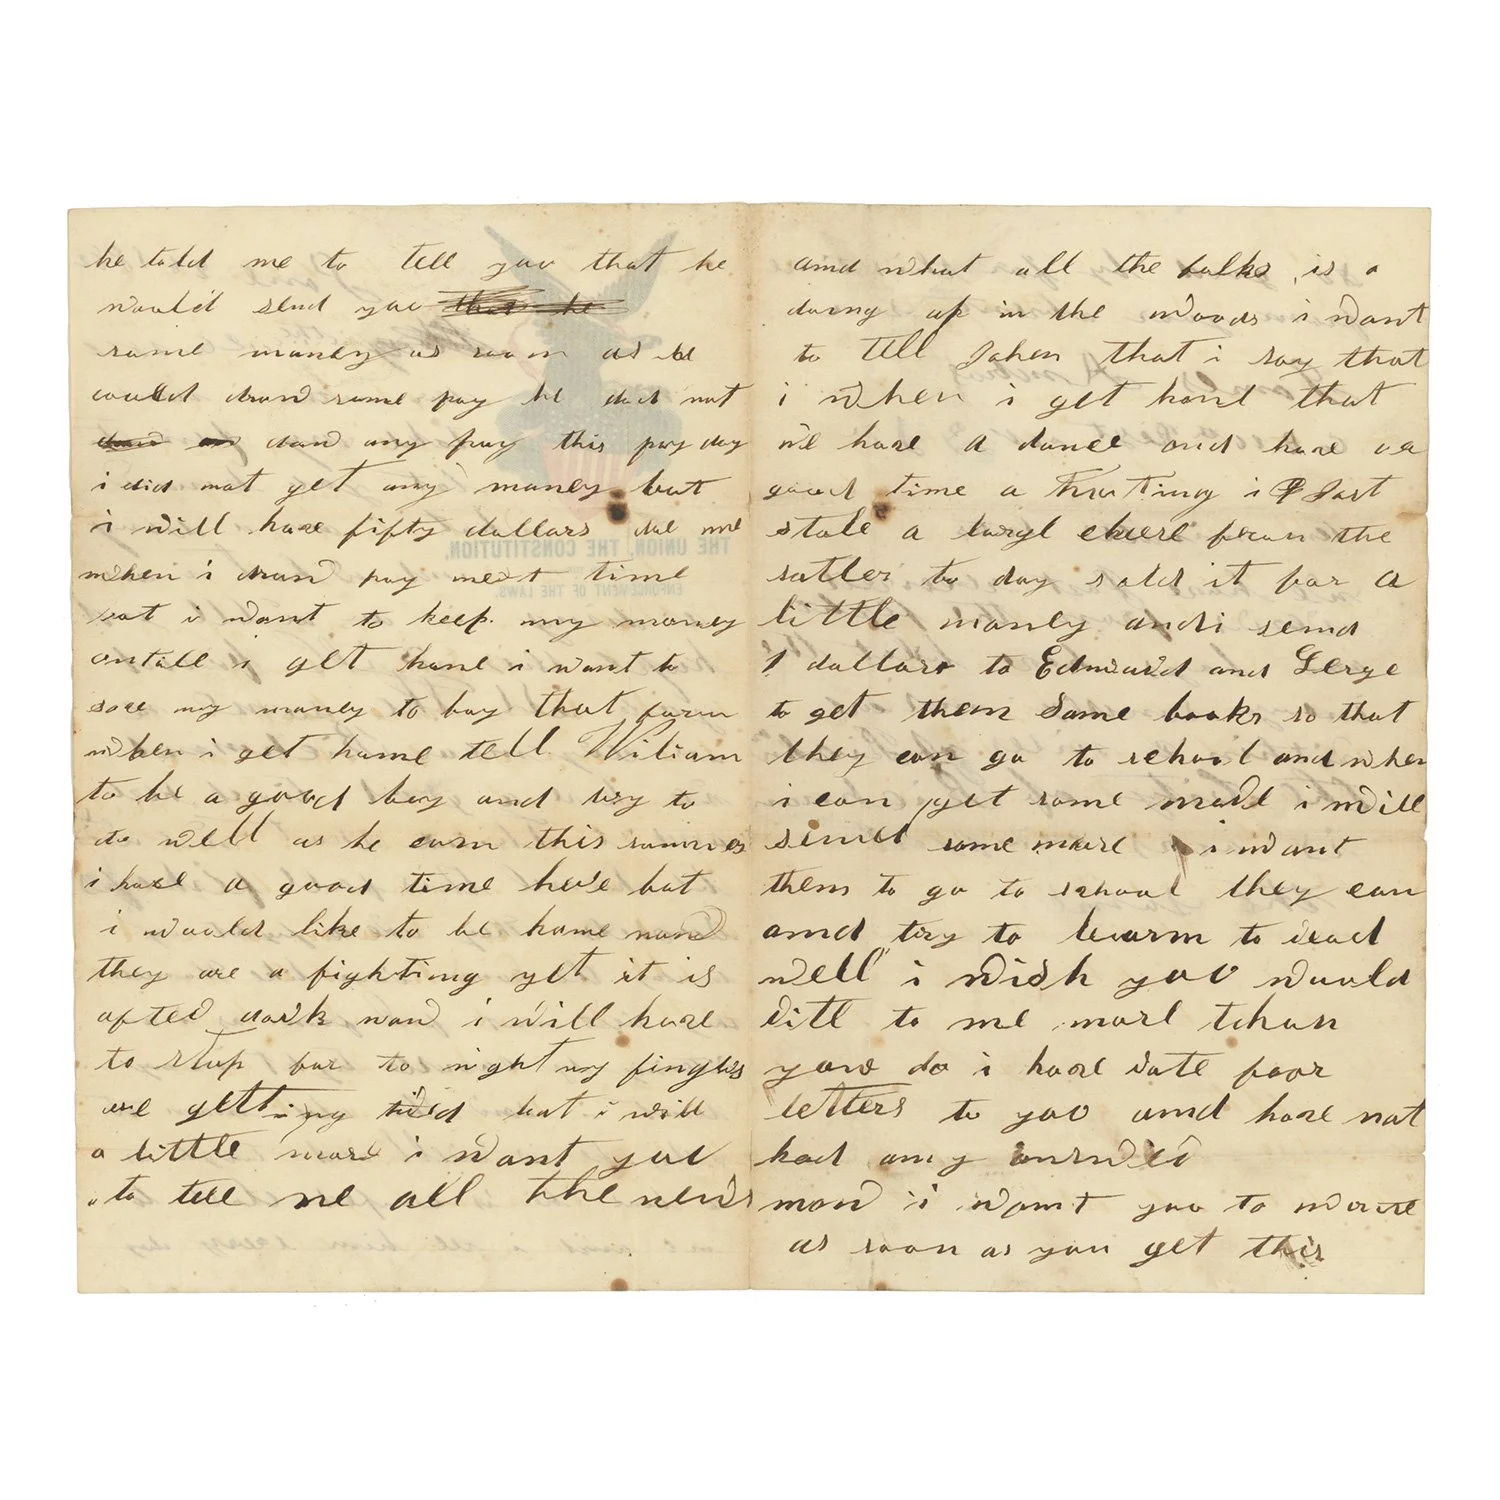 he told me to tell you that he
would send you that he
some money as soon as he
could draw some pay he did not
draw any pay this pay day
i did not get any money but
i will have fifty dollars due me
when i draw pay next time
but i want to keep my money
untill i get home i want to
save my money to buy that farm
when i get home tell Wiliam
to be a good boy and try to
do well as he can this summer
i have a good time here but
i would like to be home now
they are a fighting yet it is
after dark now i will have
to stop for to night my fingers
are getting tired but i will
a little more i want you
to tell me all the news
THE UNION, THE CONSTITUTION,
ENFORCEMENT OF THE LAWS.
and what all the folks is a
doing up in the woods i want
to tell John that i say that
i when i get home that
we have a dance and have a
good time a i Just
stole a large cheese from the
sutler to day sold it for a
little money and i send
1 dollars to Edward and Gerge
to get them some books so that
they can go to school and when
i can get some more i will
send some more i want
them to go to school they can
and try to learn to read
well i wish you would
rite to me more than
you do i have rote four
letters to you and have not
had any answer
now i want you to write
as soon as you get this